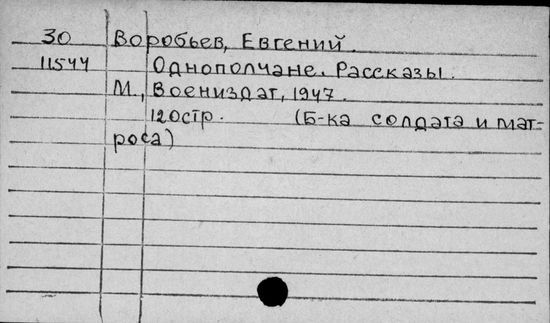 30 Воробьев, Евгений.
11544 Однополчане. Рассказы.
М., Воениздат, 1947.
120стр. (Б-ка солдата и мат-
роса)